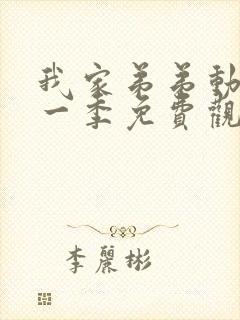 我家弟弟動
一季免費觀
李麗彬